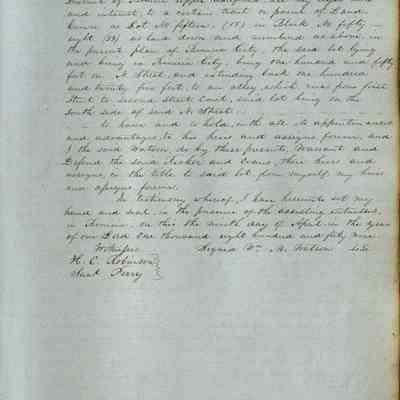 and interest, to a certain tract or parcel of Land
known as Lot No fifteen (15) in Block No fifty-
eight (58) as laid down and numbered as above in
the present plan of City, the said lot lying
and being in City, being one hundred and fifty
feet on N Street, and extending back one hundred
and twenty five feet, to an alley, which runs from first
Street to second Street East, said lot being on the
South side of said N. Street.
To have and to hold, with all its appurtenances
and advantages, to his heirs and assigns forever, and
I the said Watson, do, by these presents, Warrant and
Defend the said Archer and Evans, their heirs and
assigns, in the title to said lot, from myself, my heirs
and assigns forever.
In testimony whereof, I have hereunto set my
hand and seal, in the presence of the attesting witnesses,
in, on this the ninth day of April, in the year
of our Lord one thousand eight hundred and fifty nine.
Witnesses Signed Wm. M. Watson
H. C. Robinson
Saml Perry